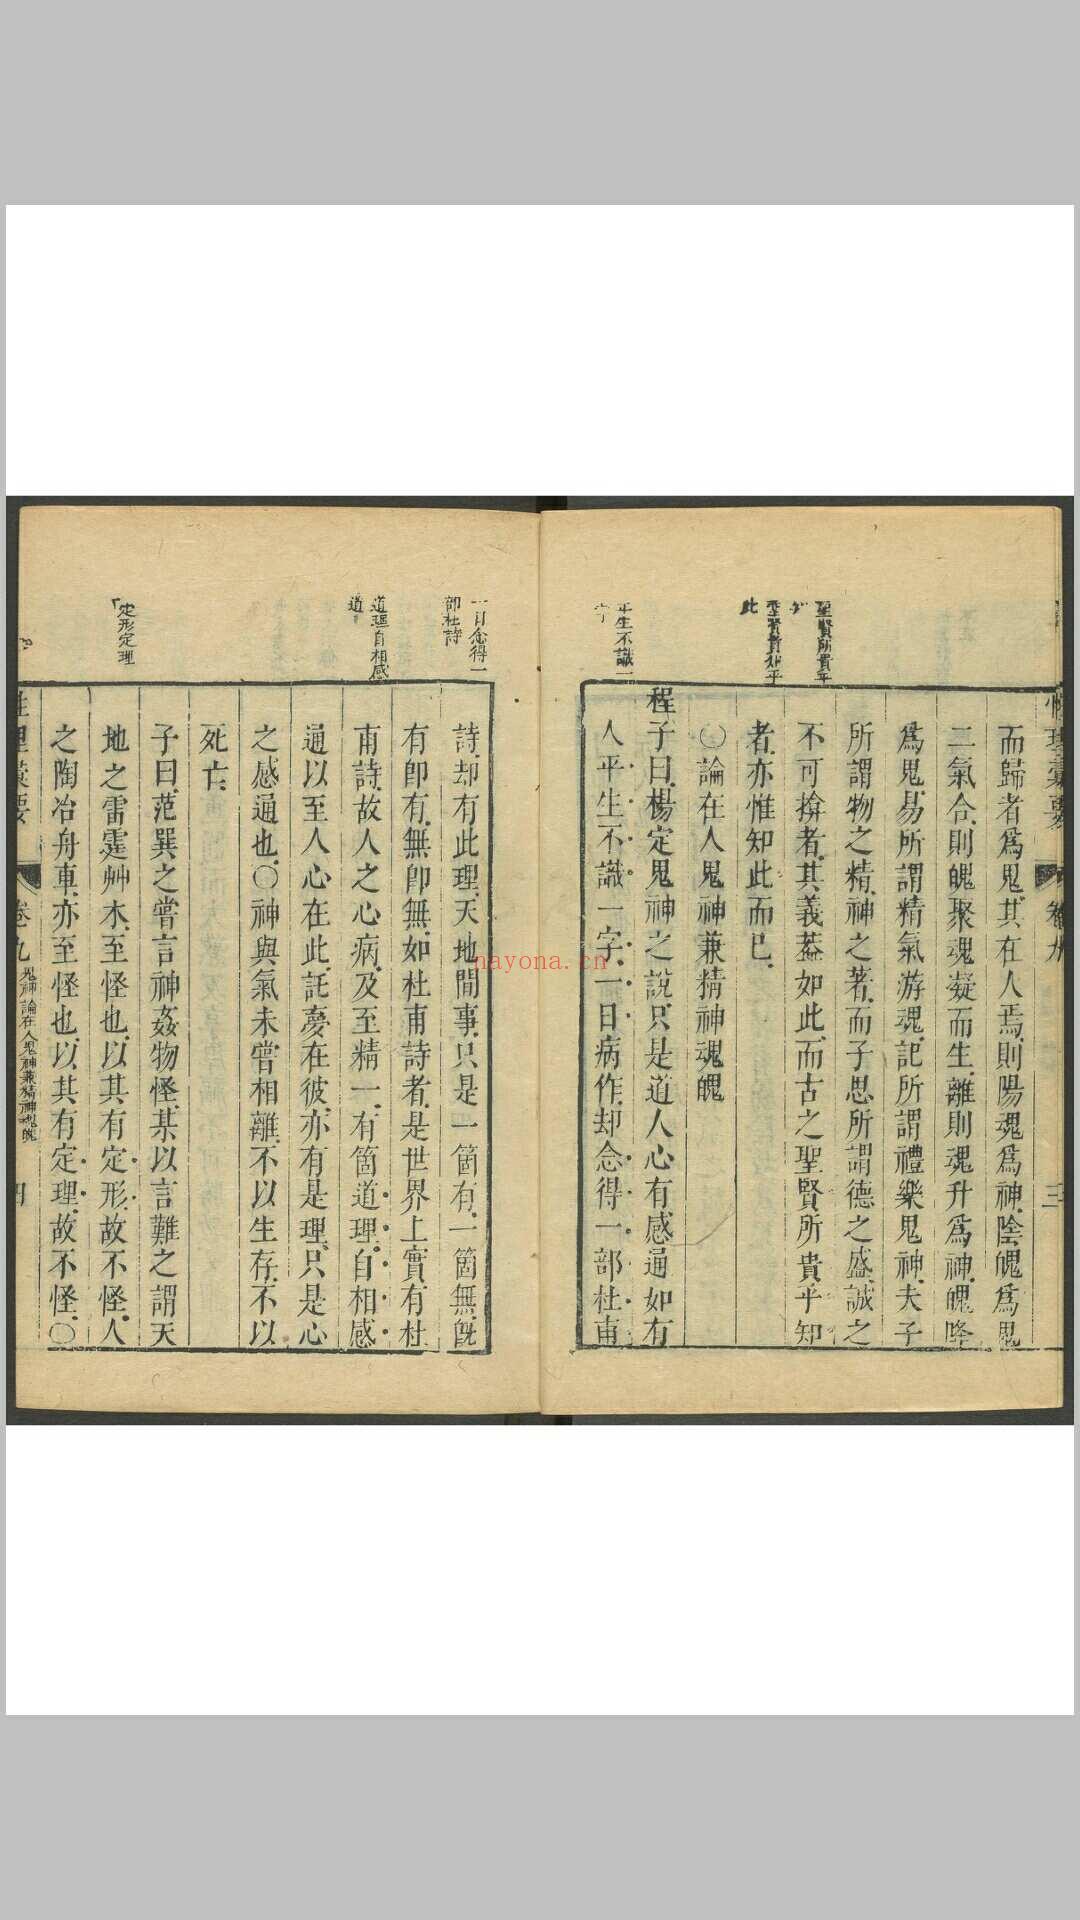 聖賢所貴乎知
聖賢貴知乎
此
平生不識一
字
性理彙要
卷九
三
而歸者爲鬼其在人焉則陽魂爲神陰魄爲鬼
二氣合則魄聚魂凝而生離則魂升爲神魄降
爲鬼易所謂精氣游魂記所謂禮樂鬼神夫子
所謂物之精神之著而子思所謂德之盛誠之
不可揜者其義葢如此而古之聖賢所貴乎知
者亦惟知此而已
〇論在人鬼神兼精神魂魄
程子曰楊定鬼神之說只是道人心有感通如有
人平生不識一字一日病作却念得一部杜甫
一日念得一
部杜詩
道理自相感
通
定形定理
詩却有此理天地間事只是一箇有一箇無旣
有卽有無卽無如杜甫詩者是世界上實有杜
甫詩故人之心病及至精一有箇道理自相感
通以至人心在此託夢在彼亦有是理只是心
之感通也〇神與氣未嘗相離不以生存不以
死亡
子曰范巽之嘗言神姦物怪某以言難之謂天
地之雷霆艸木至怪也以其有定形故不怪人
之陶冶舟車亦至怪也以其有定理故不怪〇
性理彙要
卷九
鬼神 論在人鬼神兼精神魂魄
四
nayona.cn